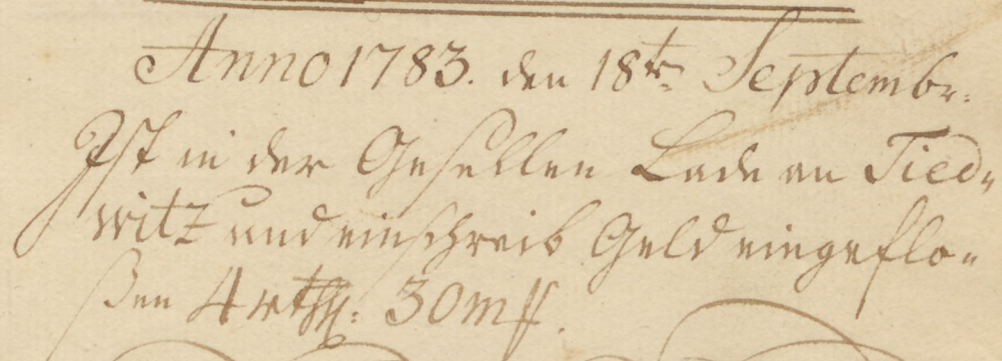 Anno 1783. den 18tr. Septembr.
Ist in der Gesellen Lade an Tied-
witz und einschreib Geld eingeflo-
ßen 4 rthl: 30 mff.